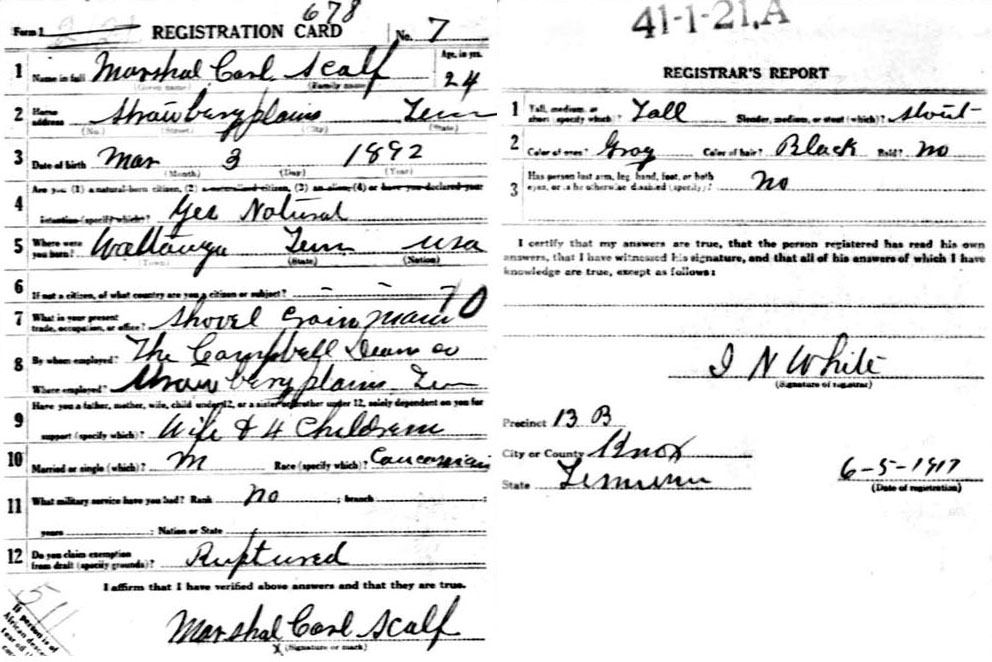 678
Form 1 REGISTRATION CARD No. 7
1 Name in full Marshal Carl Scalf Age, in yrs. 24
(Given name) (Family name)
2 Home address Strawberyplains Tenn
(No.) (Street) (City) (State)
3 Date of birth Mar 3 1892
(Month) (Day) (Year)
Are you (1) a natural-born citizen, (2) a naturalized citizen, (3) an alien, (4) or have you declared your
4 intention (specify which)? Yes Natural
5 Where were you born? Tenn usa
(Town) (State) (Nation)
6 If not a citizen, of what country are you a citizen or subject?
7 What is your present trade, occupation, or office? Shovel
8 By whom employed? The Campbell
Where employed? Strawberyplains Ten
9 Have you a father, mother, wife, child under 12, or a sister or brother under 12, solely dependent on you for
support (specify which)? Wife & 4 Children
10 Married or single (which)? M Race (specify which)? Caucasian
11 What military service have you had? Rank no ; branch ;
years ; Nation or State
12 Do you claim exemption from draft (specify grounds)? Ruptured
I affirm that I have verified above answers and that they are true.
511
Marshal Carl Scalf
X (Signature or mark)
If person is of
African
41-1-21.A
REGISTRAR'S REPORT
1 Tall, medium, or short (specify which)? Tall Slender, medium, or stout (which)? stout
2 Color of eyes? Gray Color of hair? Black Bald? no
3 Has person lost arm, leg, hand, foot, or both
eyes, or is he otherwise disabled (specify)? no
I certify that my answers are true, that the person registered has read his own
answers, that I have witnessed his signature, and that all of his answers of which I have
knowledge are true, except as follows:
I N White
(Signature of registrar)
Precinct 13 B
City or County Knox
State 6-5-1917
(Date of registration)